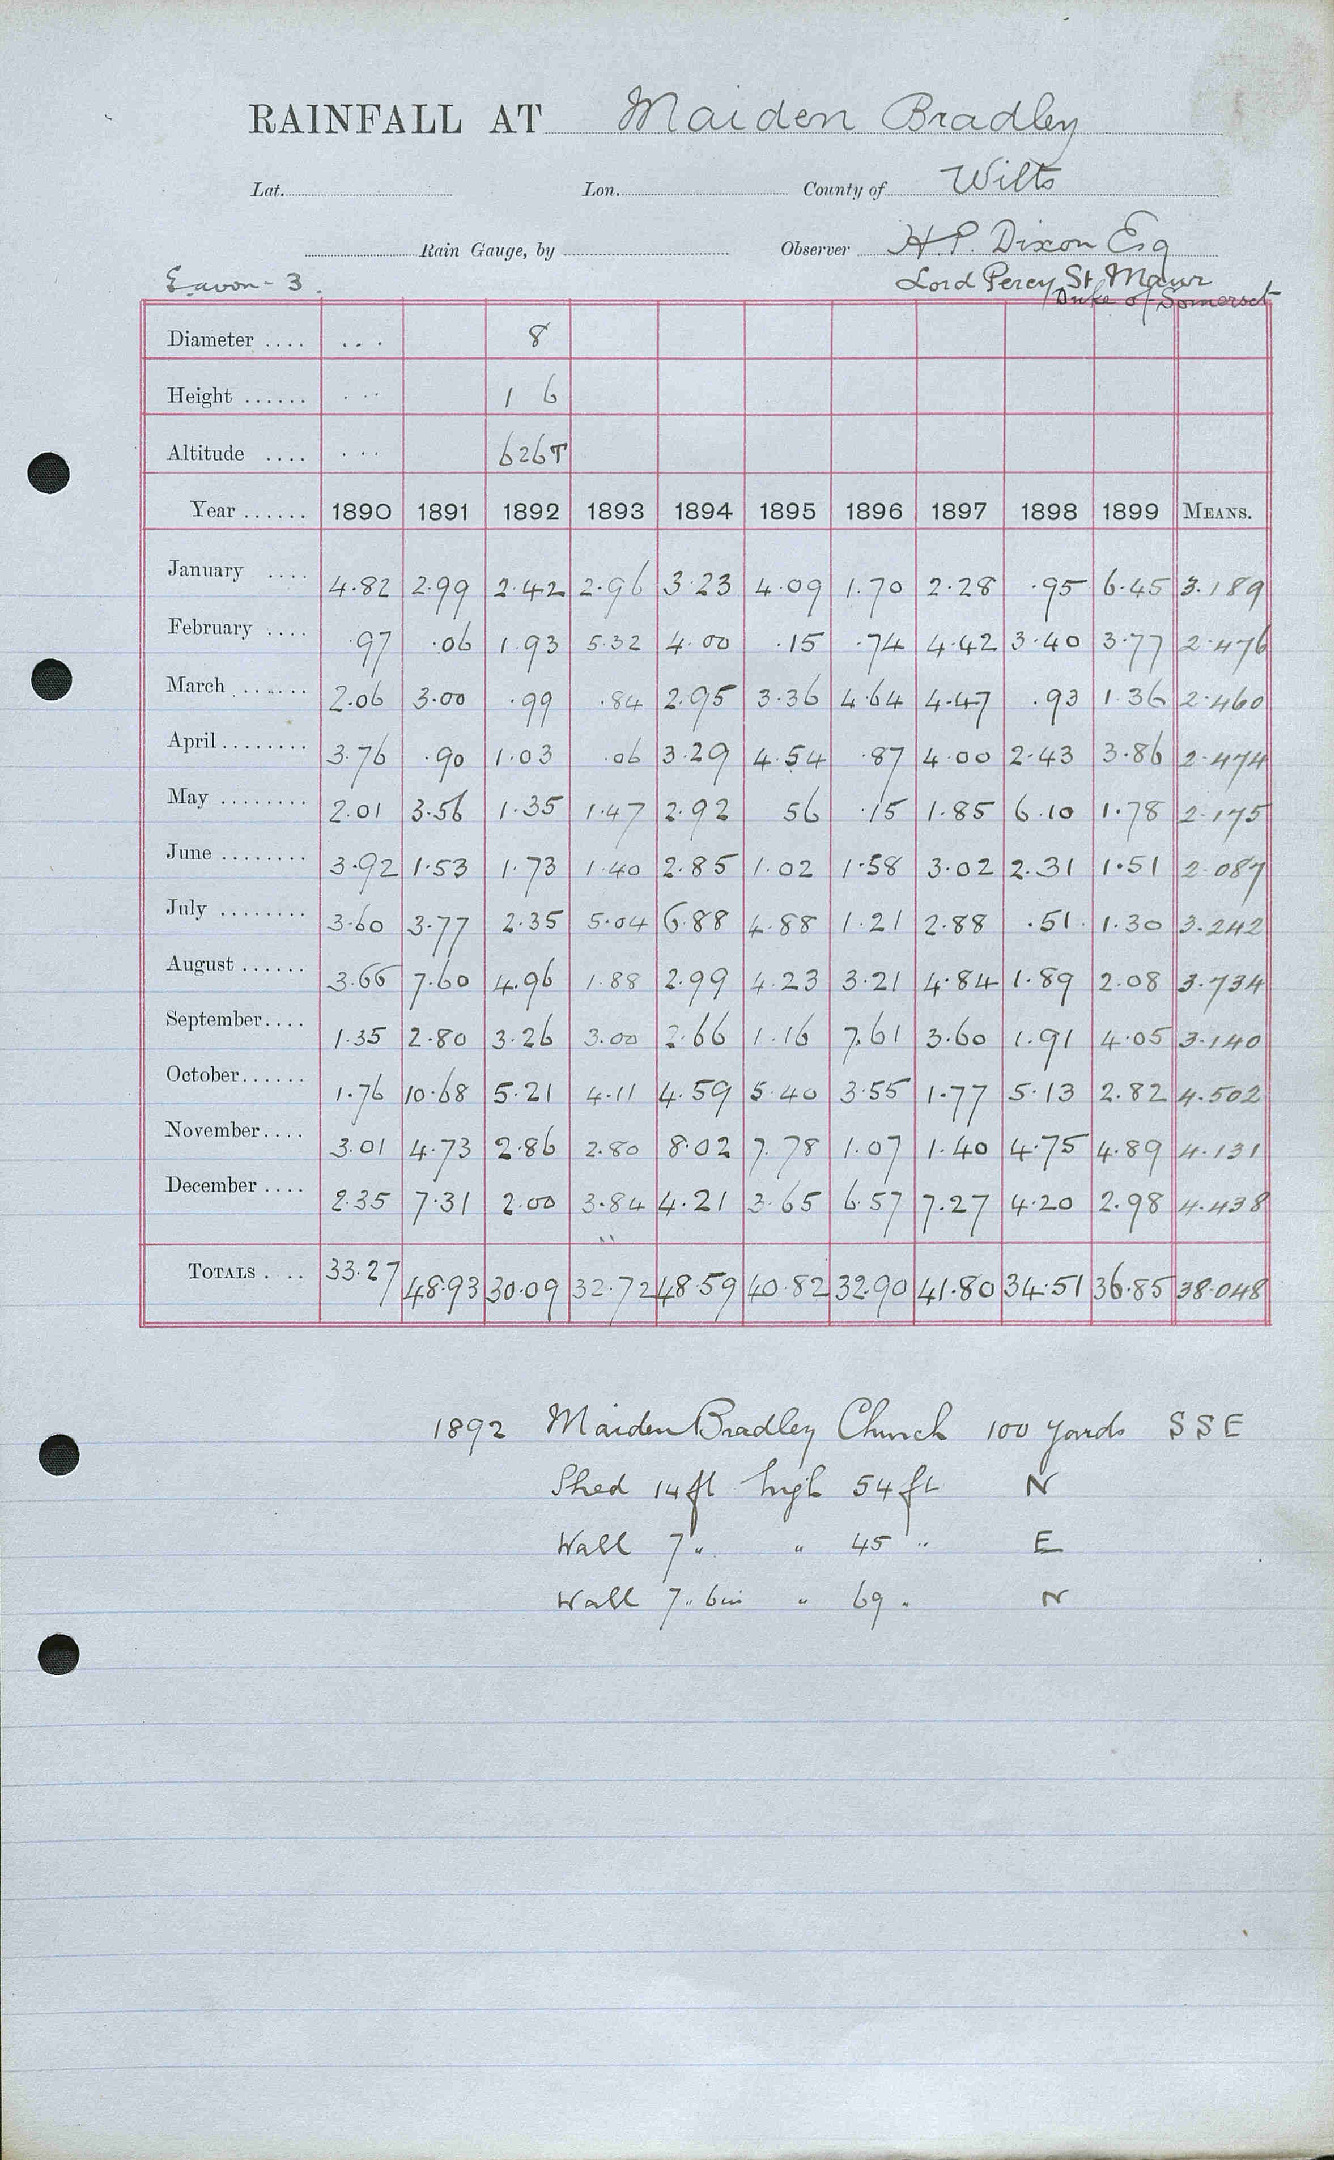 RAINFALL AT Maiden Bradley
Lat. Lon. County of Wilts
Rain Gauge, by Observer H. P. Dixon Esq
Eavon - 3. Lord Percy St. Maur
Duke of Somerset
Diameter .... ... 8
Height ...... ... 1 6
Altitude .... ... 626T
Year ...... 1890 1891 1892 1893 1894 1895 1896 1897 1898 1899 MEANS.
January .... 4.82 2.99 2.42 2.96 3.23 4.09 1.70 2.28 .95 6.45 3.189
February .... .97 .06 1.93 5.32 4.00 .15 .74 4.42 3.40 3.77 2.476
March ....... 2.06 3.00 .99 .84 2.95 3.36 4.64 4.47 .93 1.36 2.460
April ........ 3.76 .90 1.03 .06 3.29 4.54 .87 4.00 2.43 3.86 2.474
May ........ 2.01 3.56 1.35 1.47 2.92 56 .15 1.85 6.10 1.78 2.175
June ........ 3.92 1.53 1.73 1.40 2.85 1.02 1.58 3.02 2.31 1.51 2.087
July ........ 3.60 3.77 2.35 5.04 6.88 4.88 1.21 2.88 .51 1.30 3.242
August ...... 3.66 7.60 4.96 1.88 2.99 4.23 3.21 4.84 1.89 2.08 3.734
September.... 1.35 2.80 3.26 3.00 2.66 1.16 7.61 3.60 1.91 4.05 3.140
October...... 1.76 10.68 5.21 4.11 4.59 5.40 3.55 1.77 5.13 2.82 4.502
November.... 3.01 4.73 2.86 2.80 8.02 7.78 1.07 1.40 4.75 4.89 4.131
December .... 2.35 7.31 2.00 3.84 4.21 3.65 6.57 7.27 4.20 2.98 4.438
TOTALS .... 33.27 48.93 30.09 32.72 48.59 40.82 32.90 41.80 34.51 36.85 38.048
1892 Maiden Bradley Church 100 yards S S E
Shed 14 ft high 54 ft N
Wall 7 " " 45 " E
Wall 7 " 6in " 69 " N